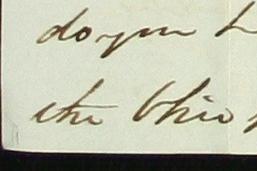 do you
the Ohio